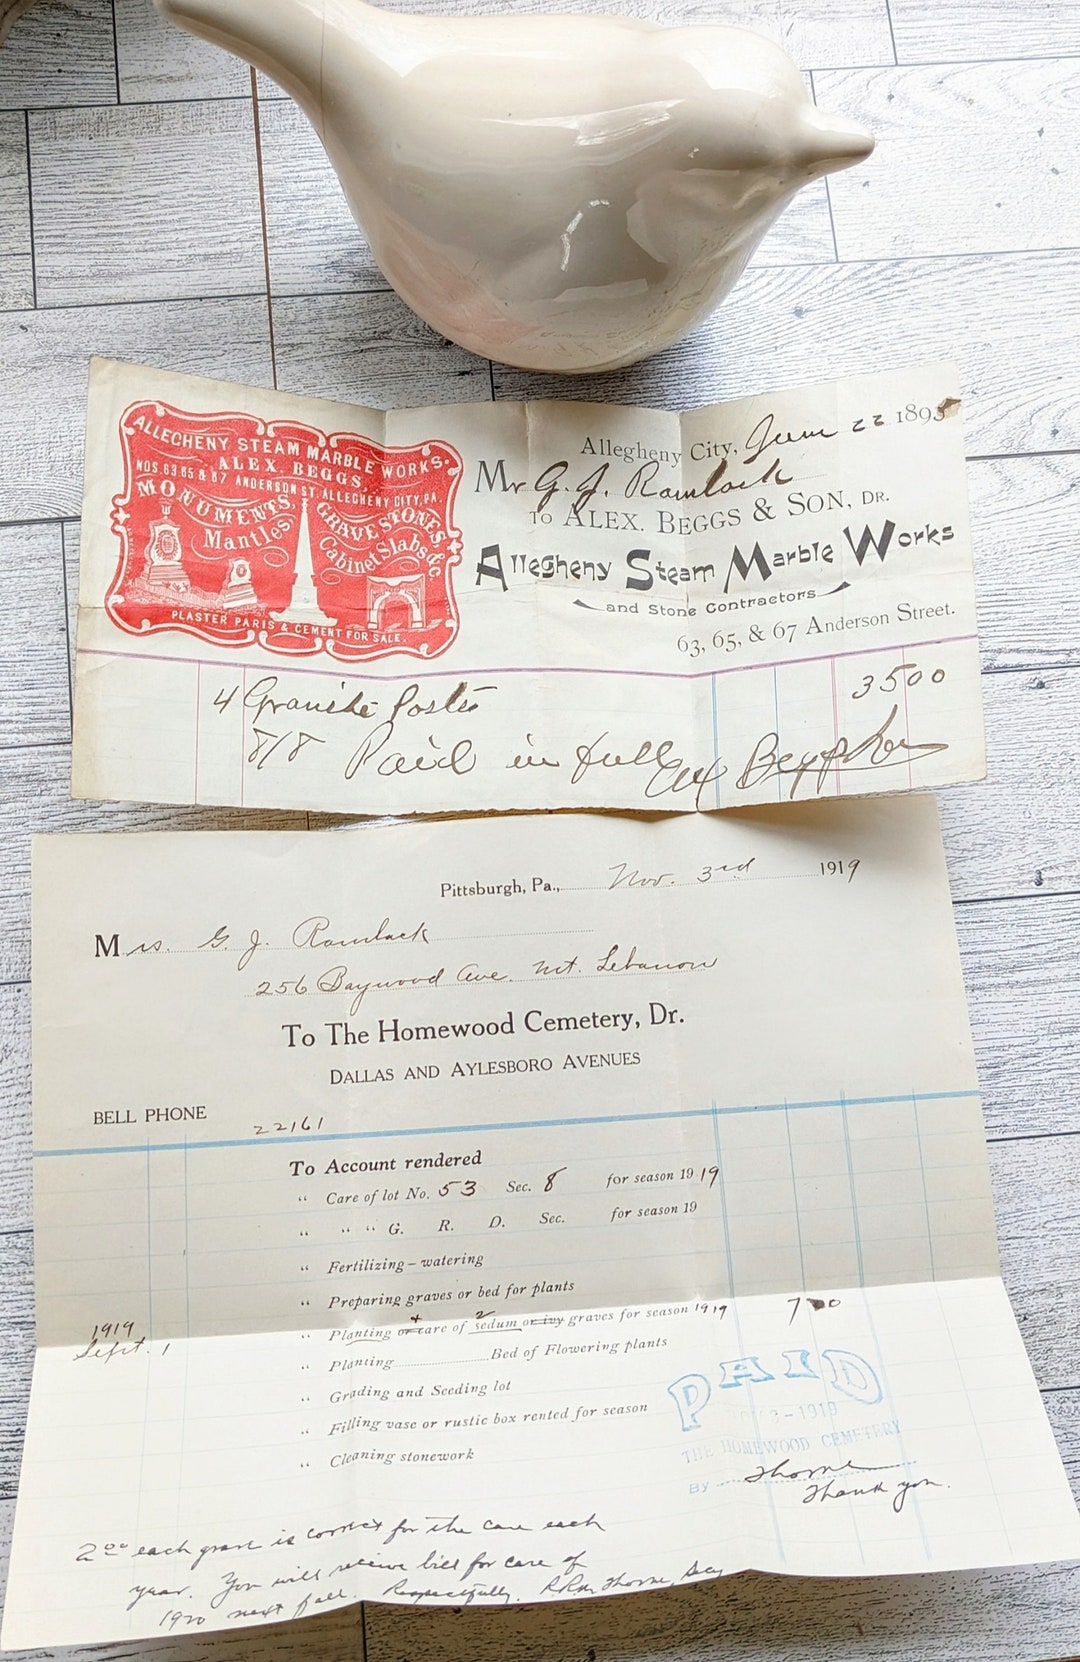 ALLEGHENY STEAM MARBLE WORKS.
ALEX. BEGGS,
NOS. 63.65 & 67 ANDERSON ST. ALLEGHENY CITY, PA.
MONUMENTS, GRAVESTONES &c
Mantles, Cabinet Slabs
PLASTER PARIS & CEMENT FOR SALE.
Allegheny City, June 22 1893
Mr G. J. Ramlack
TO ALEX. BEGGS & SON, DR.
Allegheny Steam Marble Works
and Stone Contractors
63, 65, & 67 Anderson Street.
4 Granite Posts 3500
8/8 Paid in full Alex Beggs & Son
Pittsburgh, Pa., Nov. 3rd 1919
Mrs. G. J. Ramlack
256 Baywood Ave. Mt. Lebanon
To The Homewood Cemetery, Dr.
DALLAS AND AYLESBORO AVENUES
BELL PHONE 22161
To Account rendered
" Care of lot No. 53 Sec. 8 for season 1919
" " " G. R. D. Sec. for season 19
" Fertilizing – watering
" Preparing graves or bed for plants
1919
Sept. 1 " Planting or + care of sedum or ivy 2 graves for season 1919 7 00
" Planting Bed of Flowering plants
" Grading and Seeding lot
" Filling vase or rustic box rented for season
" Cleaning stonework
PAID
3-1919
THE HOMEWOOD CEMETERY
By Thorne
Thank you.
2 00 each grave is correct for the care each
year. You will receive bill for care of
1920 next fall. Respectfully, Thorne, Secy